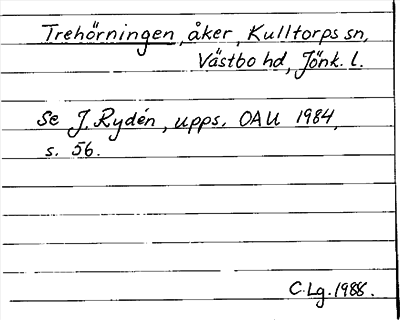 Trehörningen, åker, Kulltorps sn,
Västbo hd, Jönk. l.
Se J. Rydén, upps. OAU 1984,
s. 56.
C. Lg. 1988.